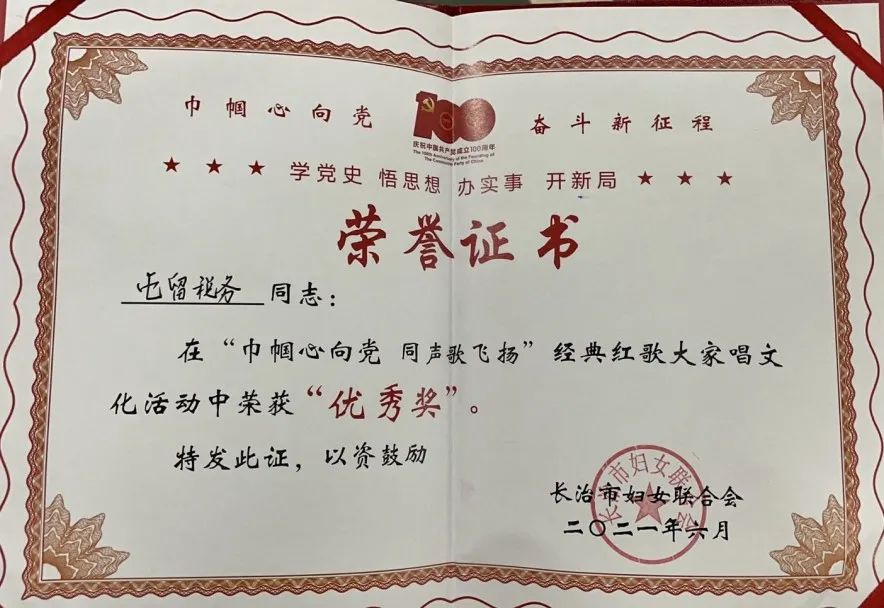 巾帼心向党 奋斗新征程
庆祝中国共产党成立100周年
The 100th Anniversary of the Founding of
The Communist Party of China
★ ★ ★ 学党史 悟思想 办实事 开新局 ★ ★ ★
荣誉证书
屯留税务 同志：
在“巾帼心向党 同声歌飞扬”经典红歌大家唱文
化活动中荣获“优秀奖”。
特发此证，以资鼓励
长治市妇女联合会
长治市妇女联合会
二〇二一年六月